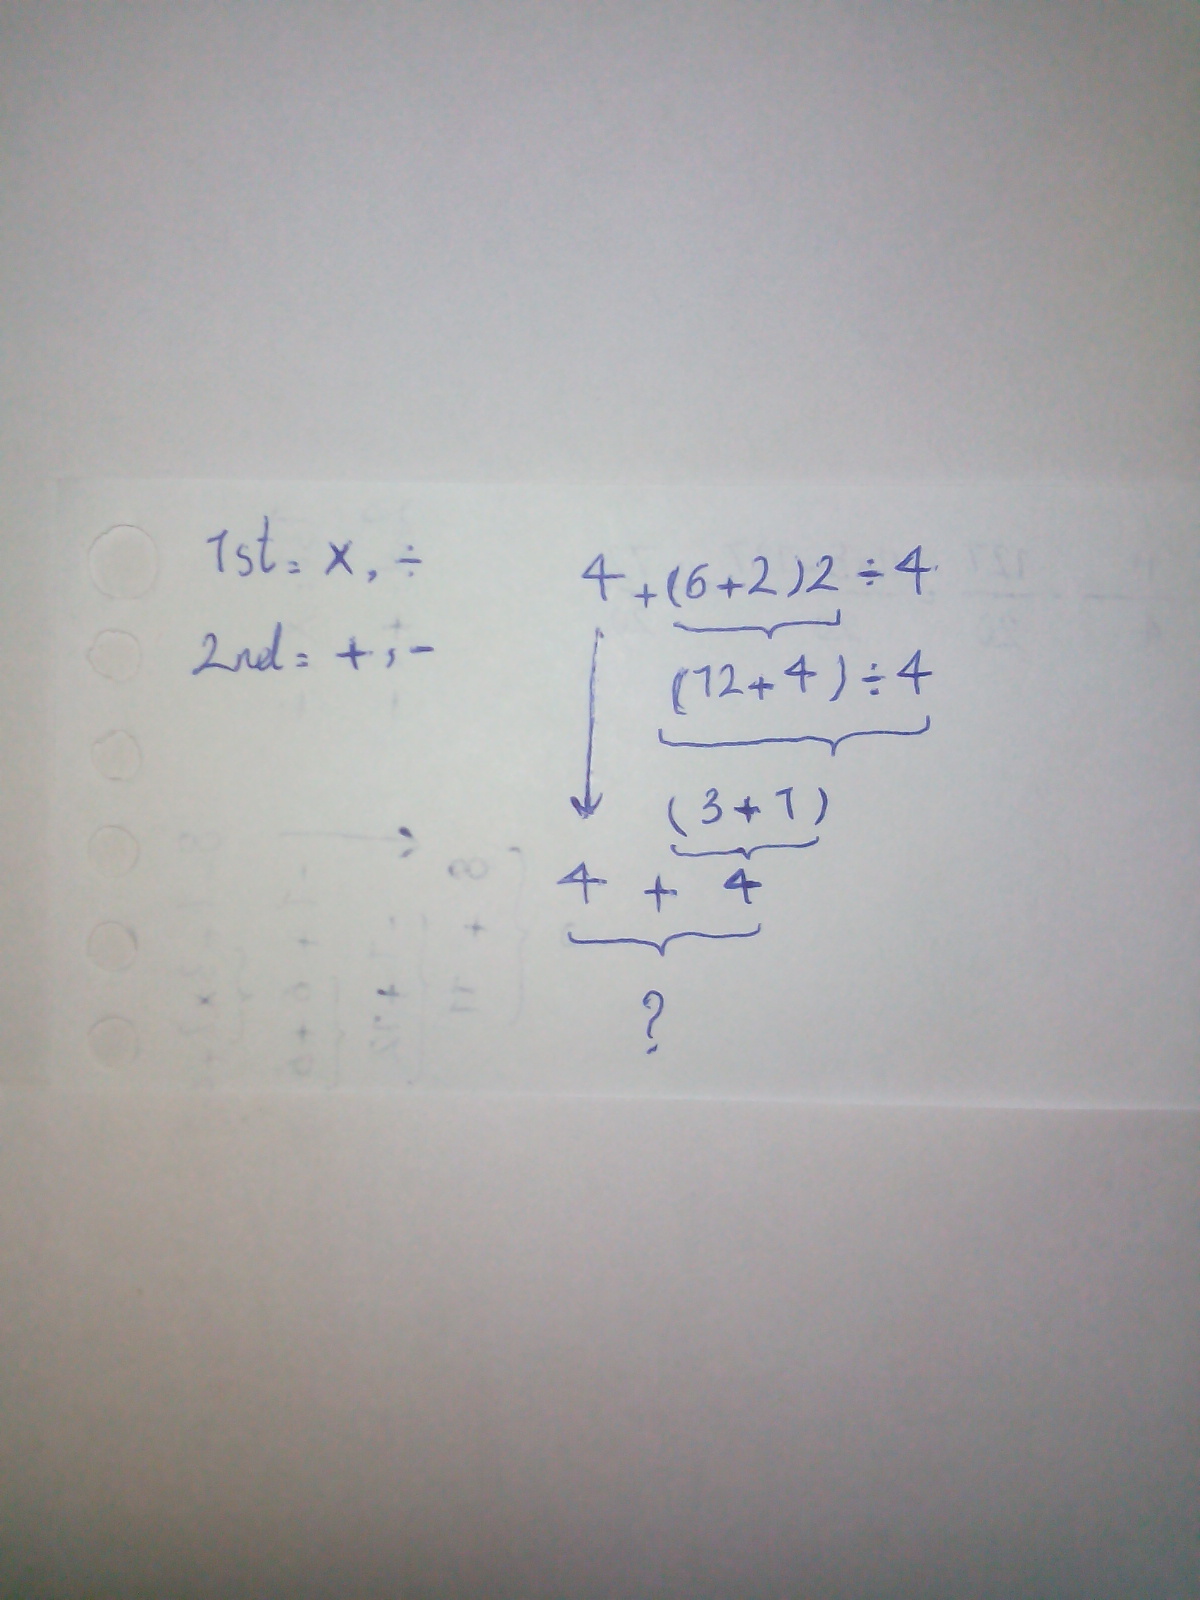 1st = x, ÷
2nd = +, -
4 + (6+2)2 ÷ 4
(12+4) ÷ 4
(3+1)
4 + 4
?